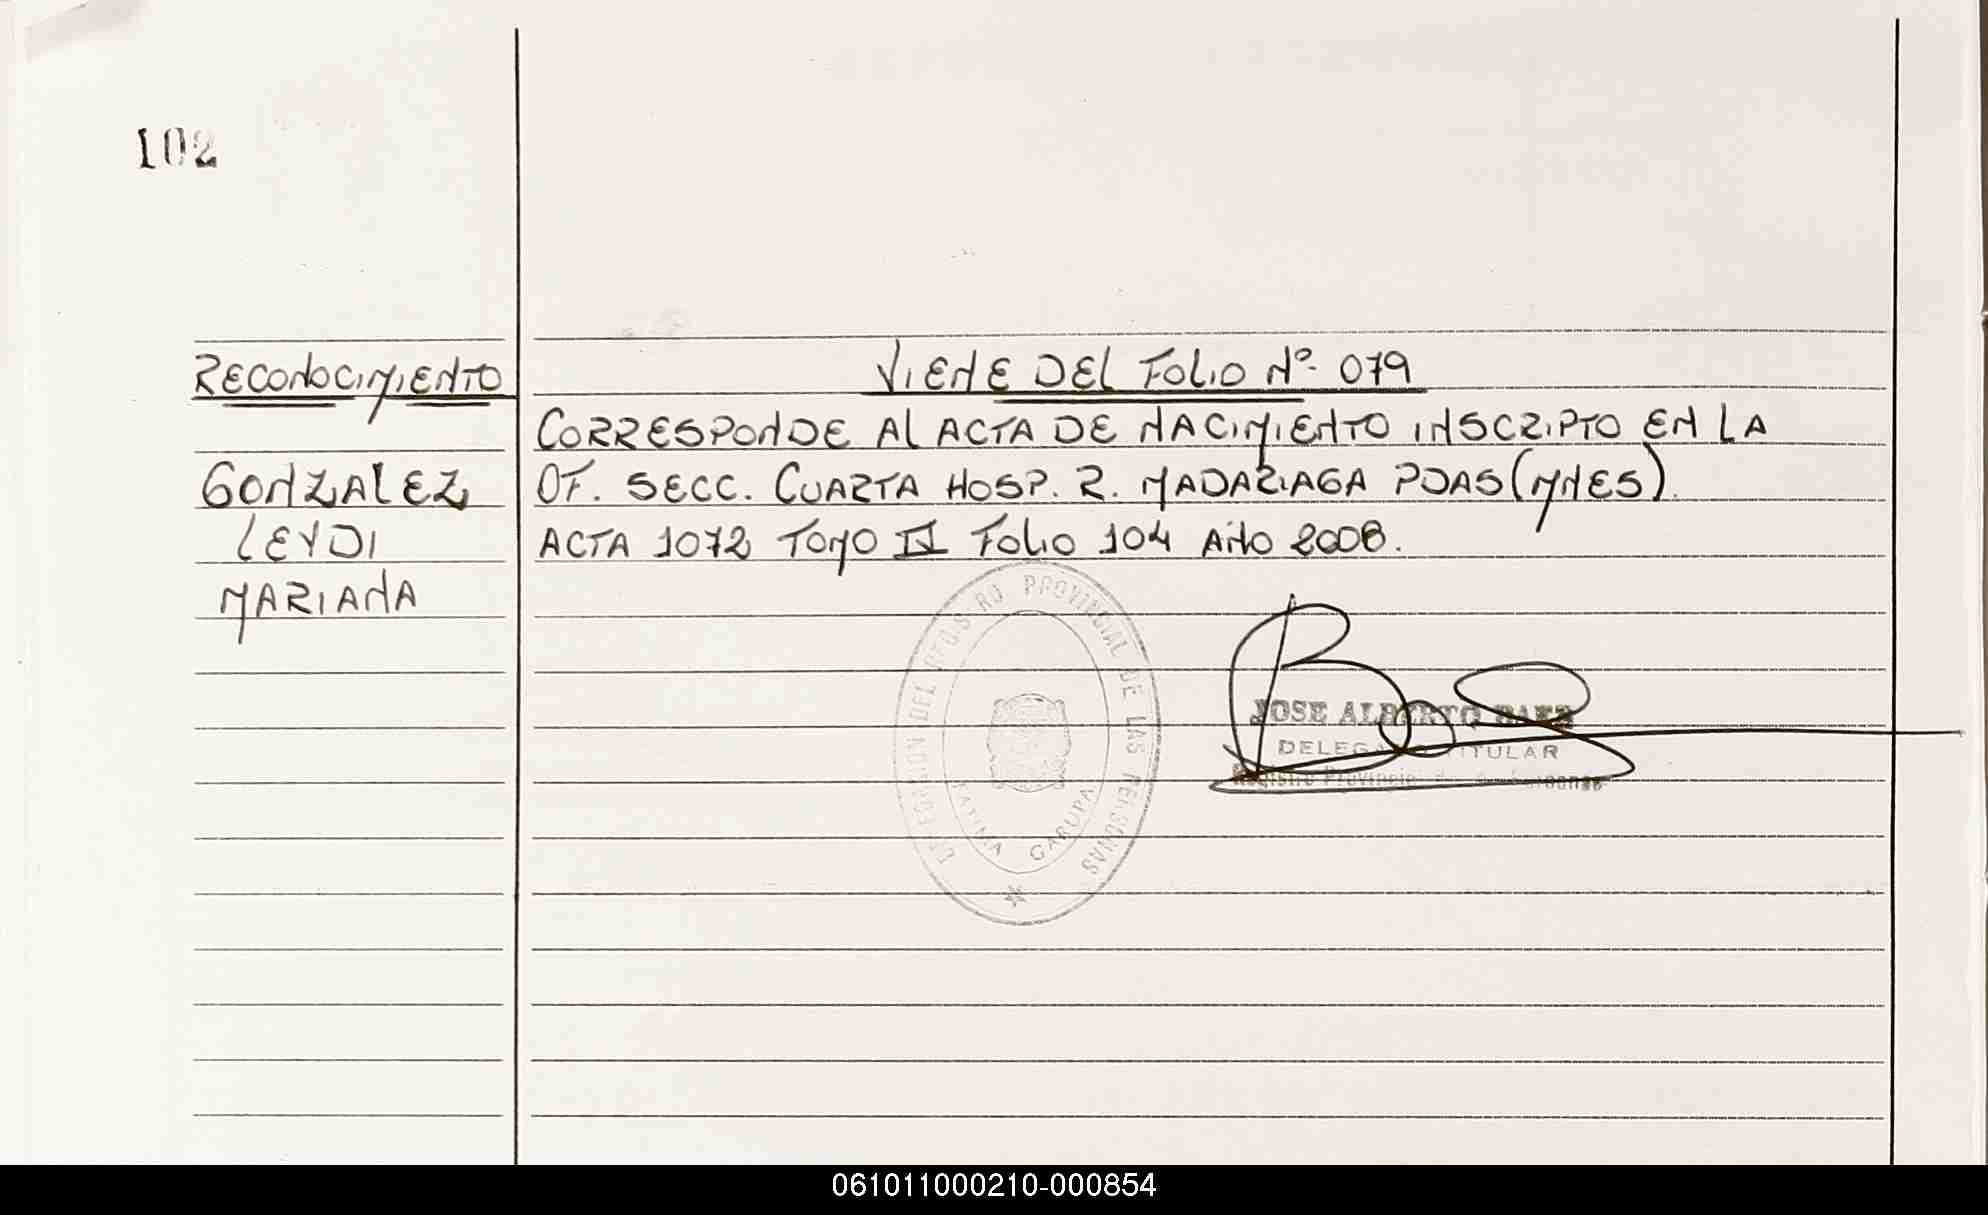 102
RECONOCIMIENTO
VIENE DEL FOLIO Nº 079
CORRESPONDE AL ACTA DE NACIMIENTO INSCRIPTO EN LA
GONZALEZ
OF. SECC. CUARTA HOSP. R. MADARIAGA PDAS (MNES).
LEYDI
ACTA 1072 TOMO II FOLIO 104 AÑO 2008.
MARIANA
PROVINCIAL DE LAS PERSONAS
FATIMA GARUPA
JOSE ALBERTO BAEZ
DELEGADO TITULAR
Registro Provincial de las Personas
061011000210-000854